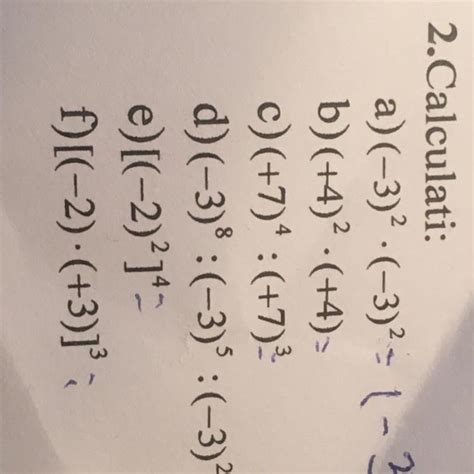 2.Calculati:
a)(−3)²·(−3)²= (−3
b)(+4)²·(+4)=
c)(+7)⁴:(+7)³=
d)(−3)⁸:(−3)⁵:(−3)²
e)[(−2)²]⁴=
f)[(−2)·(+3)]³=